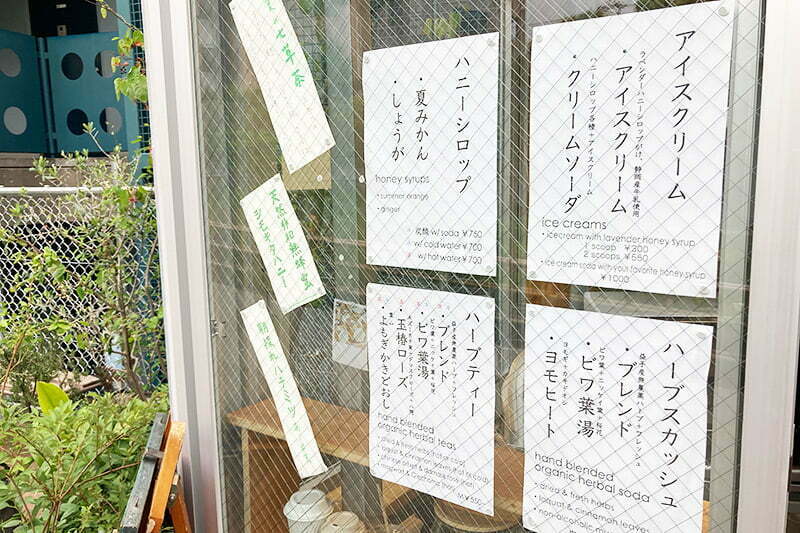 七草茶
天然物無味蜜
ハニーシロップ
・夏みかん
・しょうが
honey syrups
・summer orange
・ginger
炭酸 w/ soda ¥750
w/ cold water ¥700
w/ hot water ¥700
アイスクリーム
ラベンダーハニーシロップがけ、静岡産牛乳使用
・アイスクリーム
ハニーシロップ各種+アイスクリーム
・クリームソーダ
ice creams
・icecream with lavender honey syrup
1 scoop ¥300
2 scoops ¥550
・ice cream soda with your favorite honey syrup
¥1000
ハーブティー
・ブレンド
・ビワ葉湯
・玉椿ローズ
・よもぎかきどおし
hand blended
organic herbal teas
¥550
ハーブスカッシュ
益子産無農薬ハーブ+フレッシュ
・ブレンド
ビワ葉+ニッケイ葉+桜花
・ビワ葉湯
ヨモギ+カキドオシ
・ヨモヒート
hand blended
organic herbal soda
・dried & fresh herbs
・loquat & cinnamon leaves